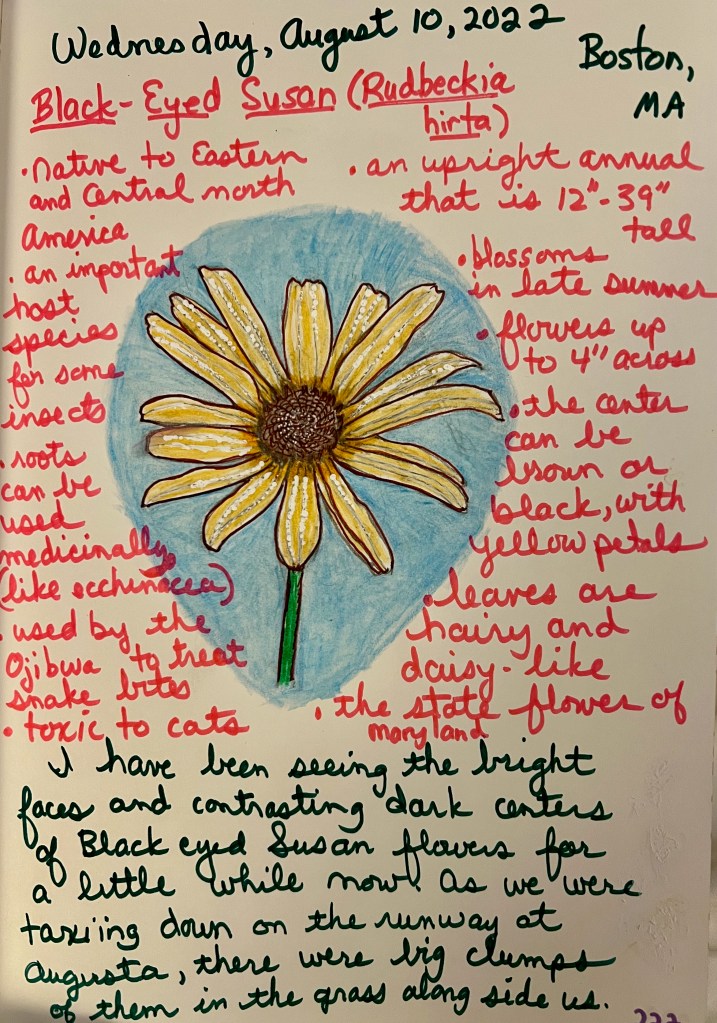 Wednesday, August 10, 2022
Boston,
MA
Black-Eyed Susan (Rudbeckia
hirta)
• native to Eastern
and Central north
America
• an important
host
species
for some
insects
• roots
can be
used
medicinally
(like ecchinacea)
• used by the
Ojibwa to treat
snake bites
• toxic to cats
• an upright annual
that is 12"-39"
tall
• blossoms
in late summer
• flowers up
to 4" across
• the center
can be
brown or
black, with
yellow petals
• leaves are
hairy and
daisy-like
• the state flower of
maryland
I have been seeing the bright
faces and contrasting dark centers
of Black eyed Susan flowers for
a little while now. As we were
taxiing down on the runway at
Augusta, there were big clumps
of them in the grass along side us.